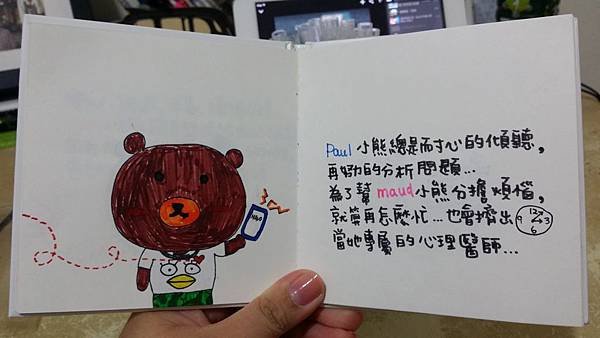 Paul小熊總是耐心的傾聽,
再好好的分析問題...
為了幫maud小熊分擔煩惱,
就算再怎麼忙...也會擠出
12
9 3
6
當她專屬的心理醫師...